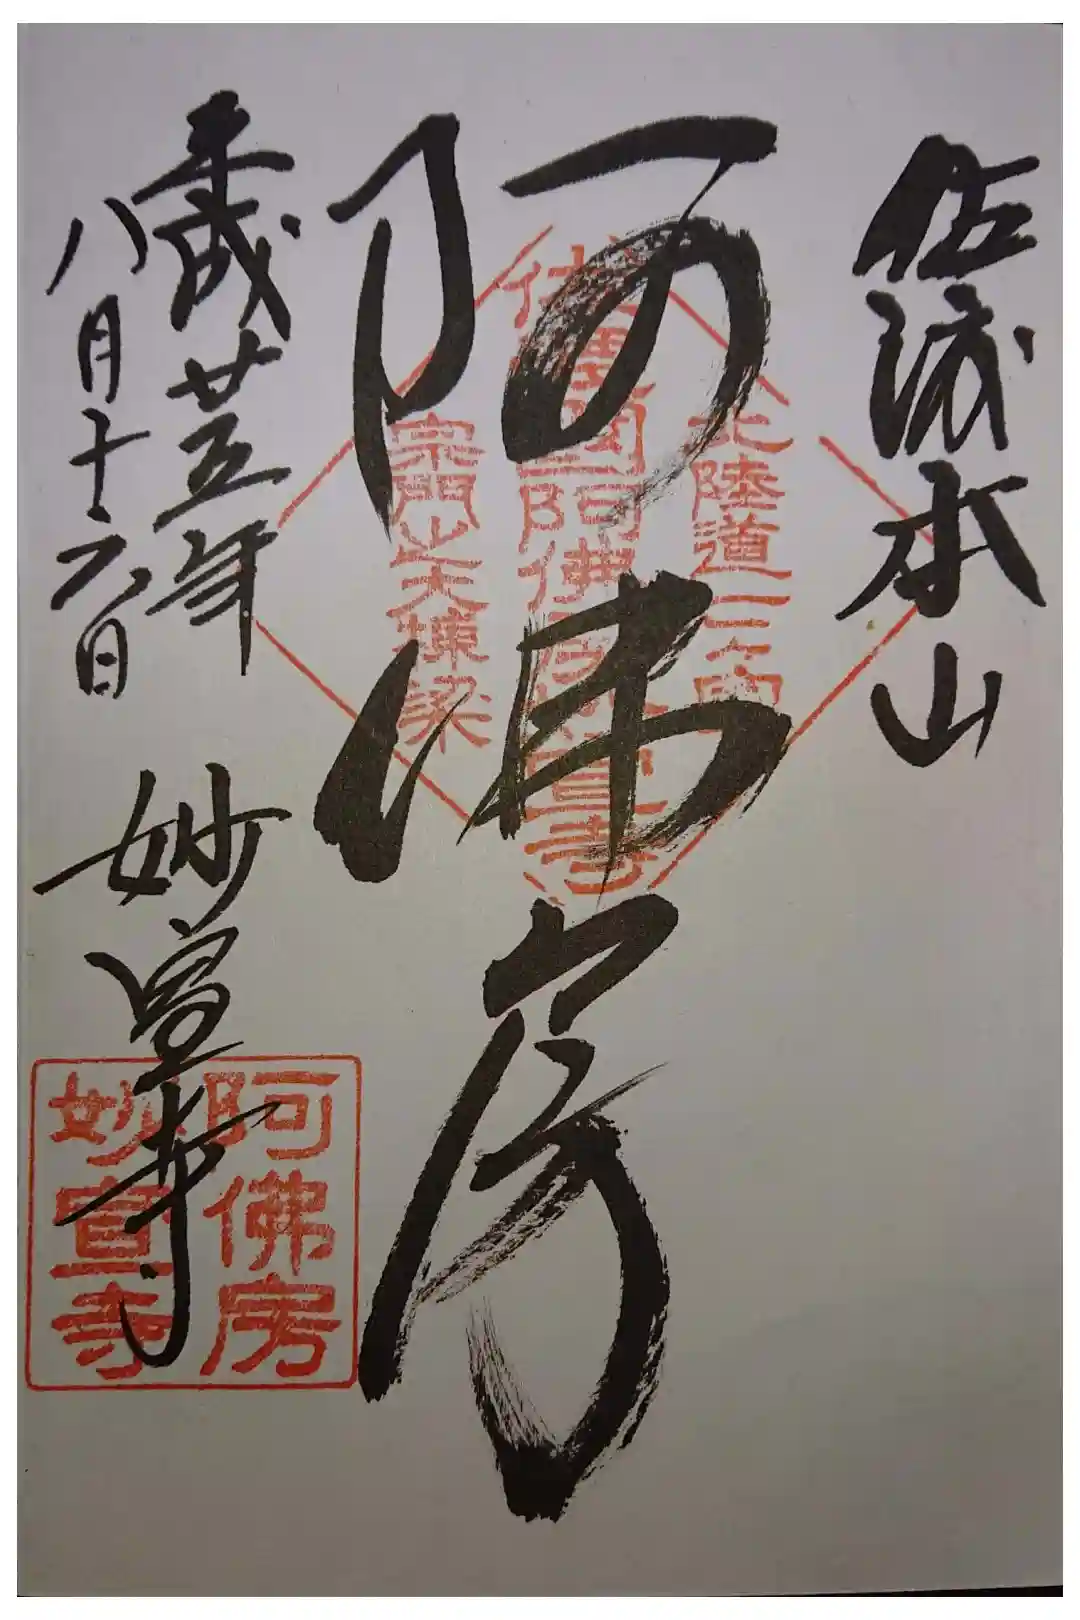 佐渡本山
阿佛房
平成廿五年
八月十六日
妙宣寺
北陸道
佐渡國阿佛房妙宣寺
宗門之大棟梁
阿佛房
妙宣寺